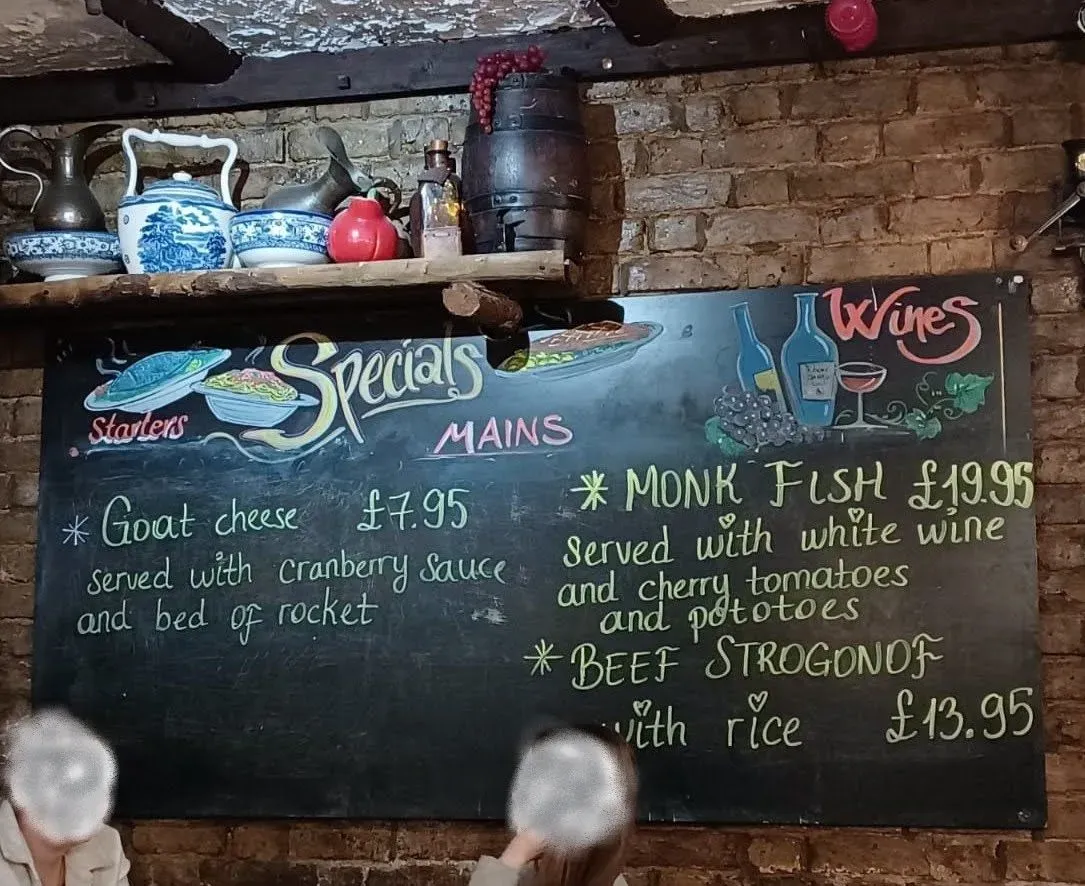 Specials
Wines
Starters
MAINS
* Goat cheese £7.95
served with cranberry sauce
and bed of rocket
* MONK FISH £19.95
Served with white wine
and cherry tomatoes
and pototoes
* BEEF STROGONOF
with rice £13.95